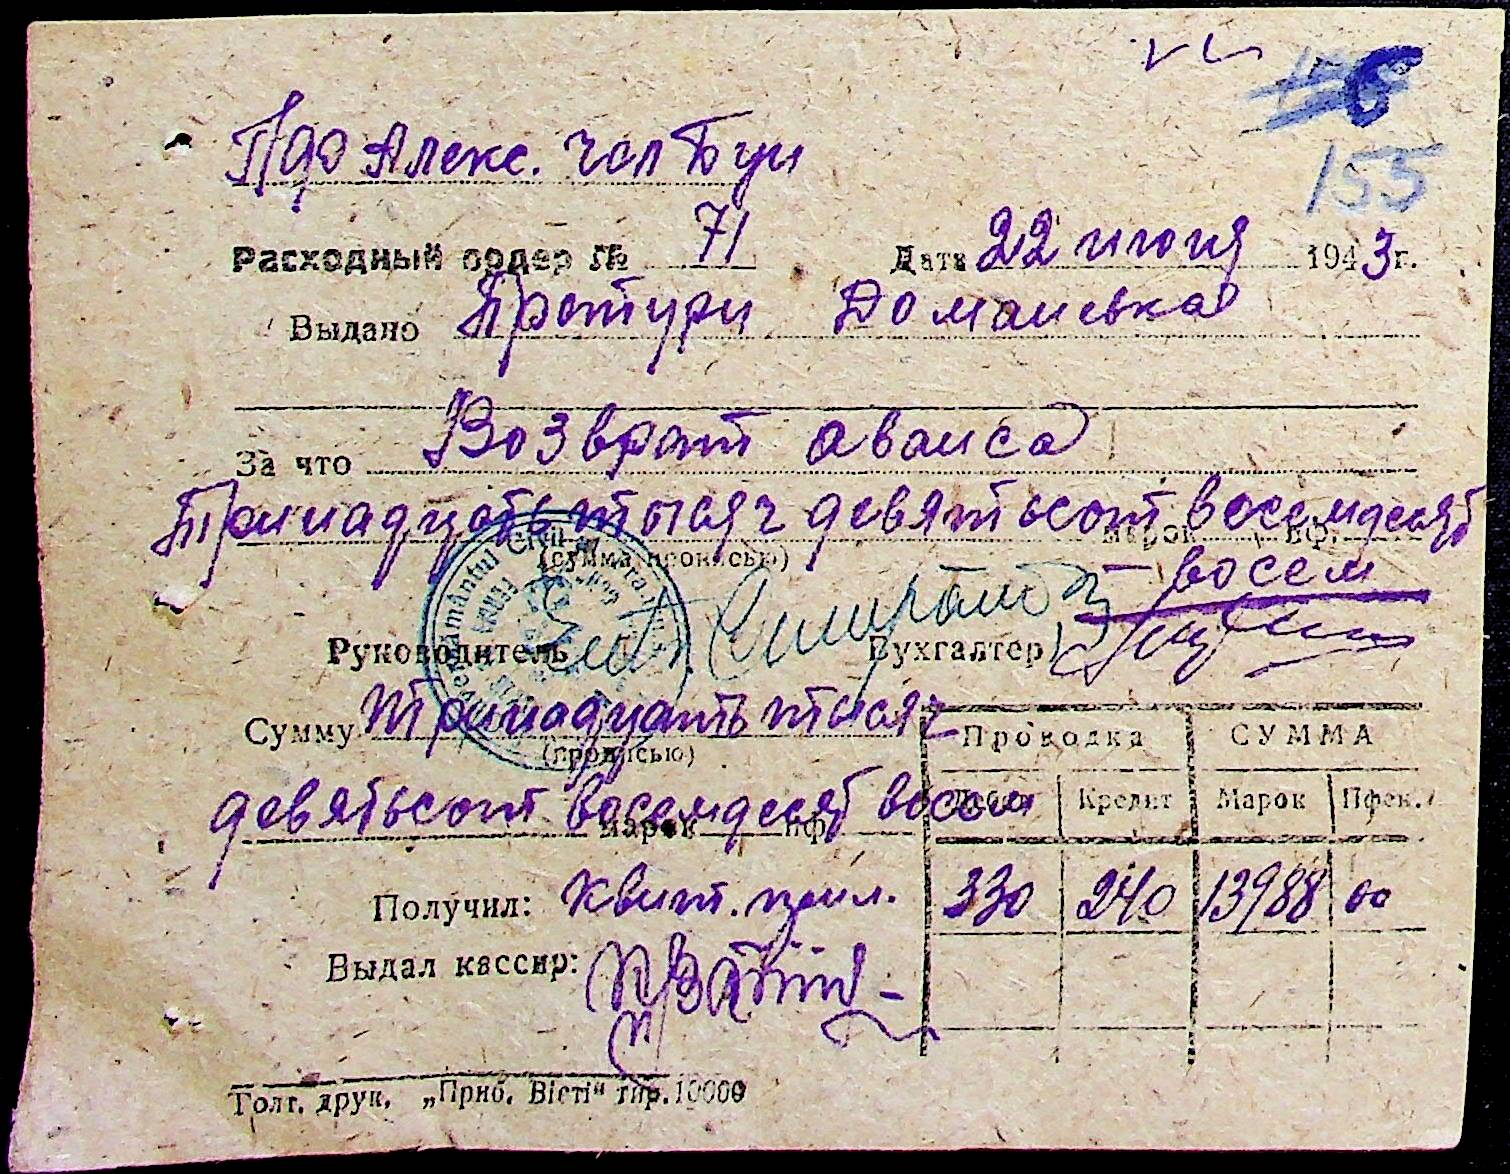 155
Алекс.
Расходный ордер № 71 Дата 22 июня 1943 г.
Выдано Претури Доманевка
За что Возврат аванса
Тринадцать тысяч девятьсот восемдесят
марок пф.
(сумма прописью) восем
Руководитель Бухгалтер
Сумму тринадцать тысяч
(прописью)
девятьсот восемдесят восем
марок пф.
Проводка СУММА
Дебет Кредит Марок Пфен.
330 240 13988 00
Получил: Квит. прил.
Выдал кассир:
Голт. друк. „Приб. Вісті“ тир. 10000